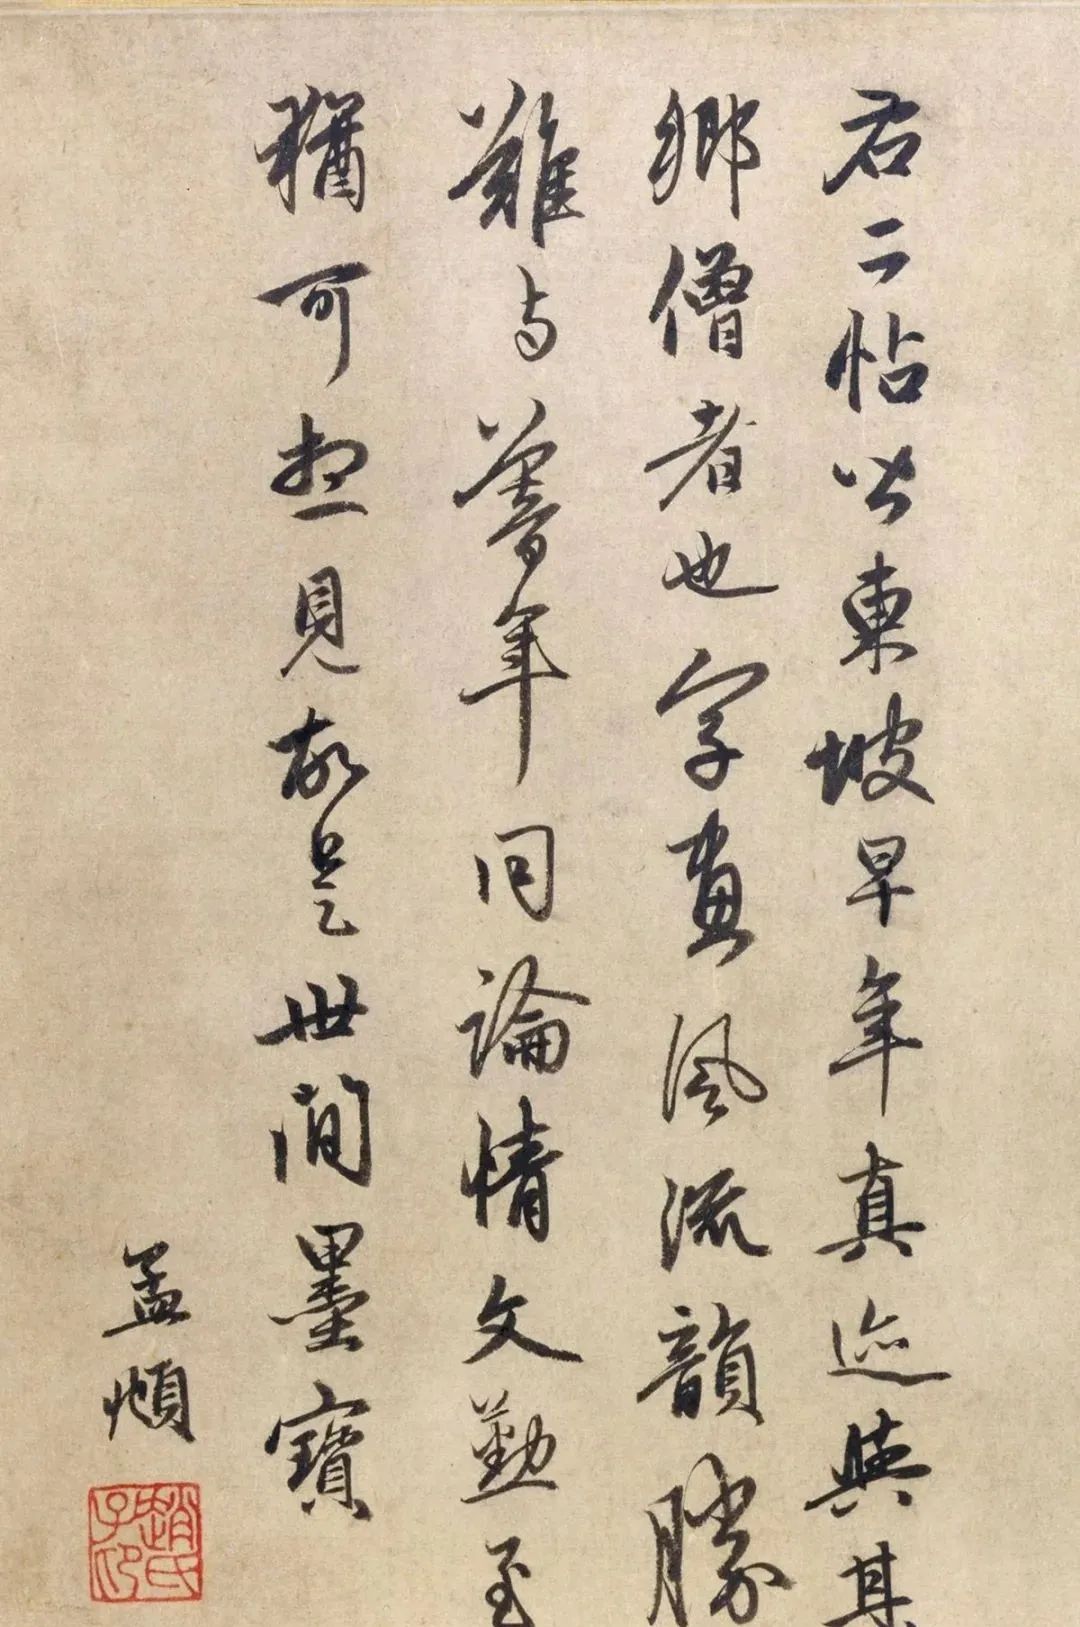 右二帖皆東坡早年真迹與其
鄉僧者也字畫風流韻勝
難與暮年同論情文勤至
猶可想見故是世間墨寶
孟頫
趙氏子印